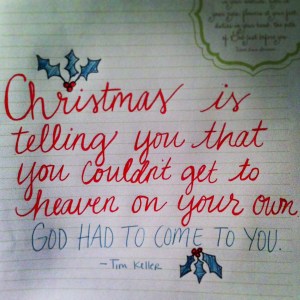 Christmas is
telling you that
you couldn't get to
heaven on your own
GOD HAD TO COME TO YOU.
- Tim Keller